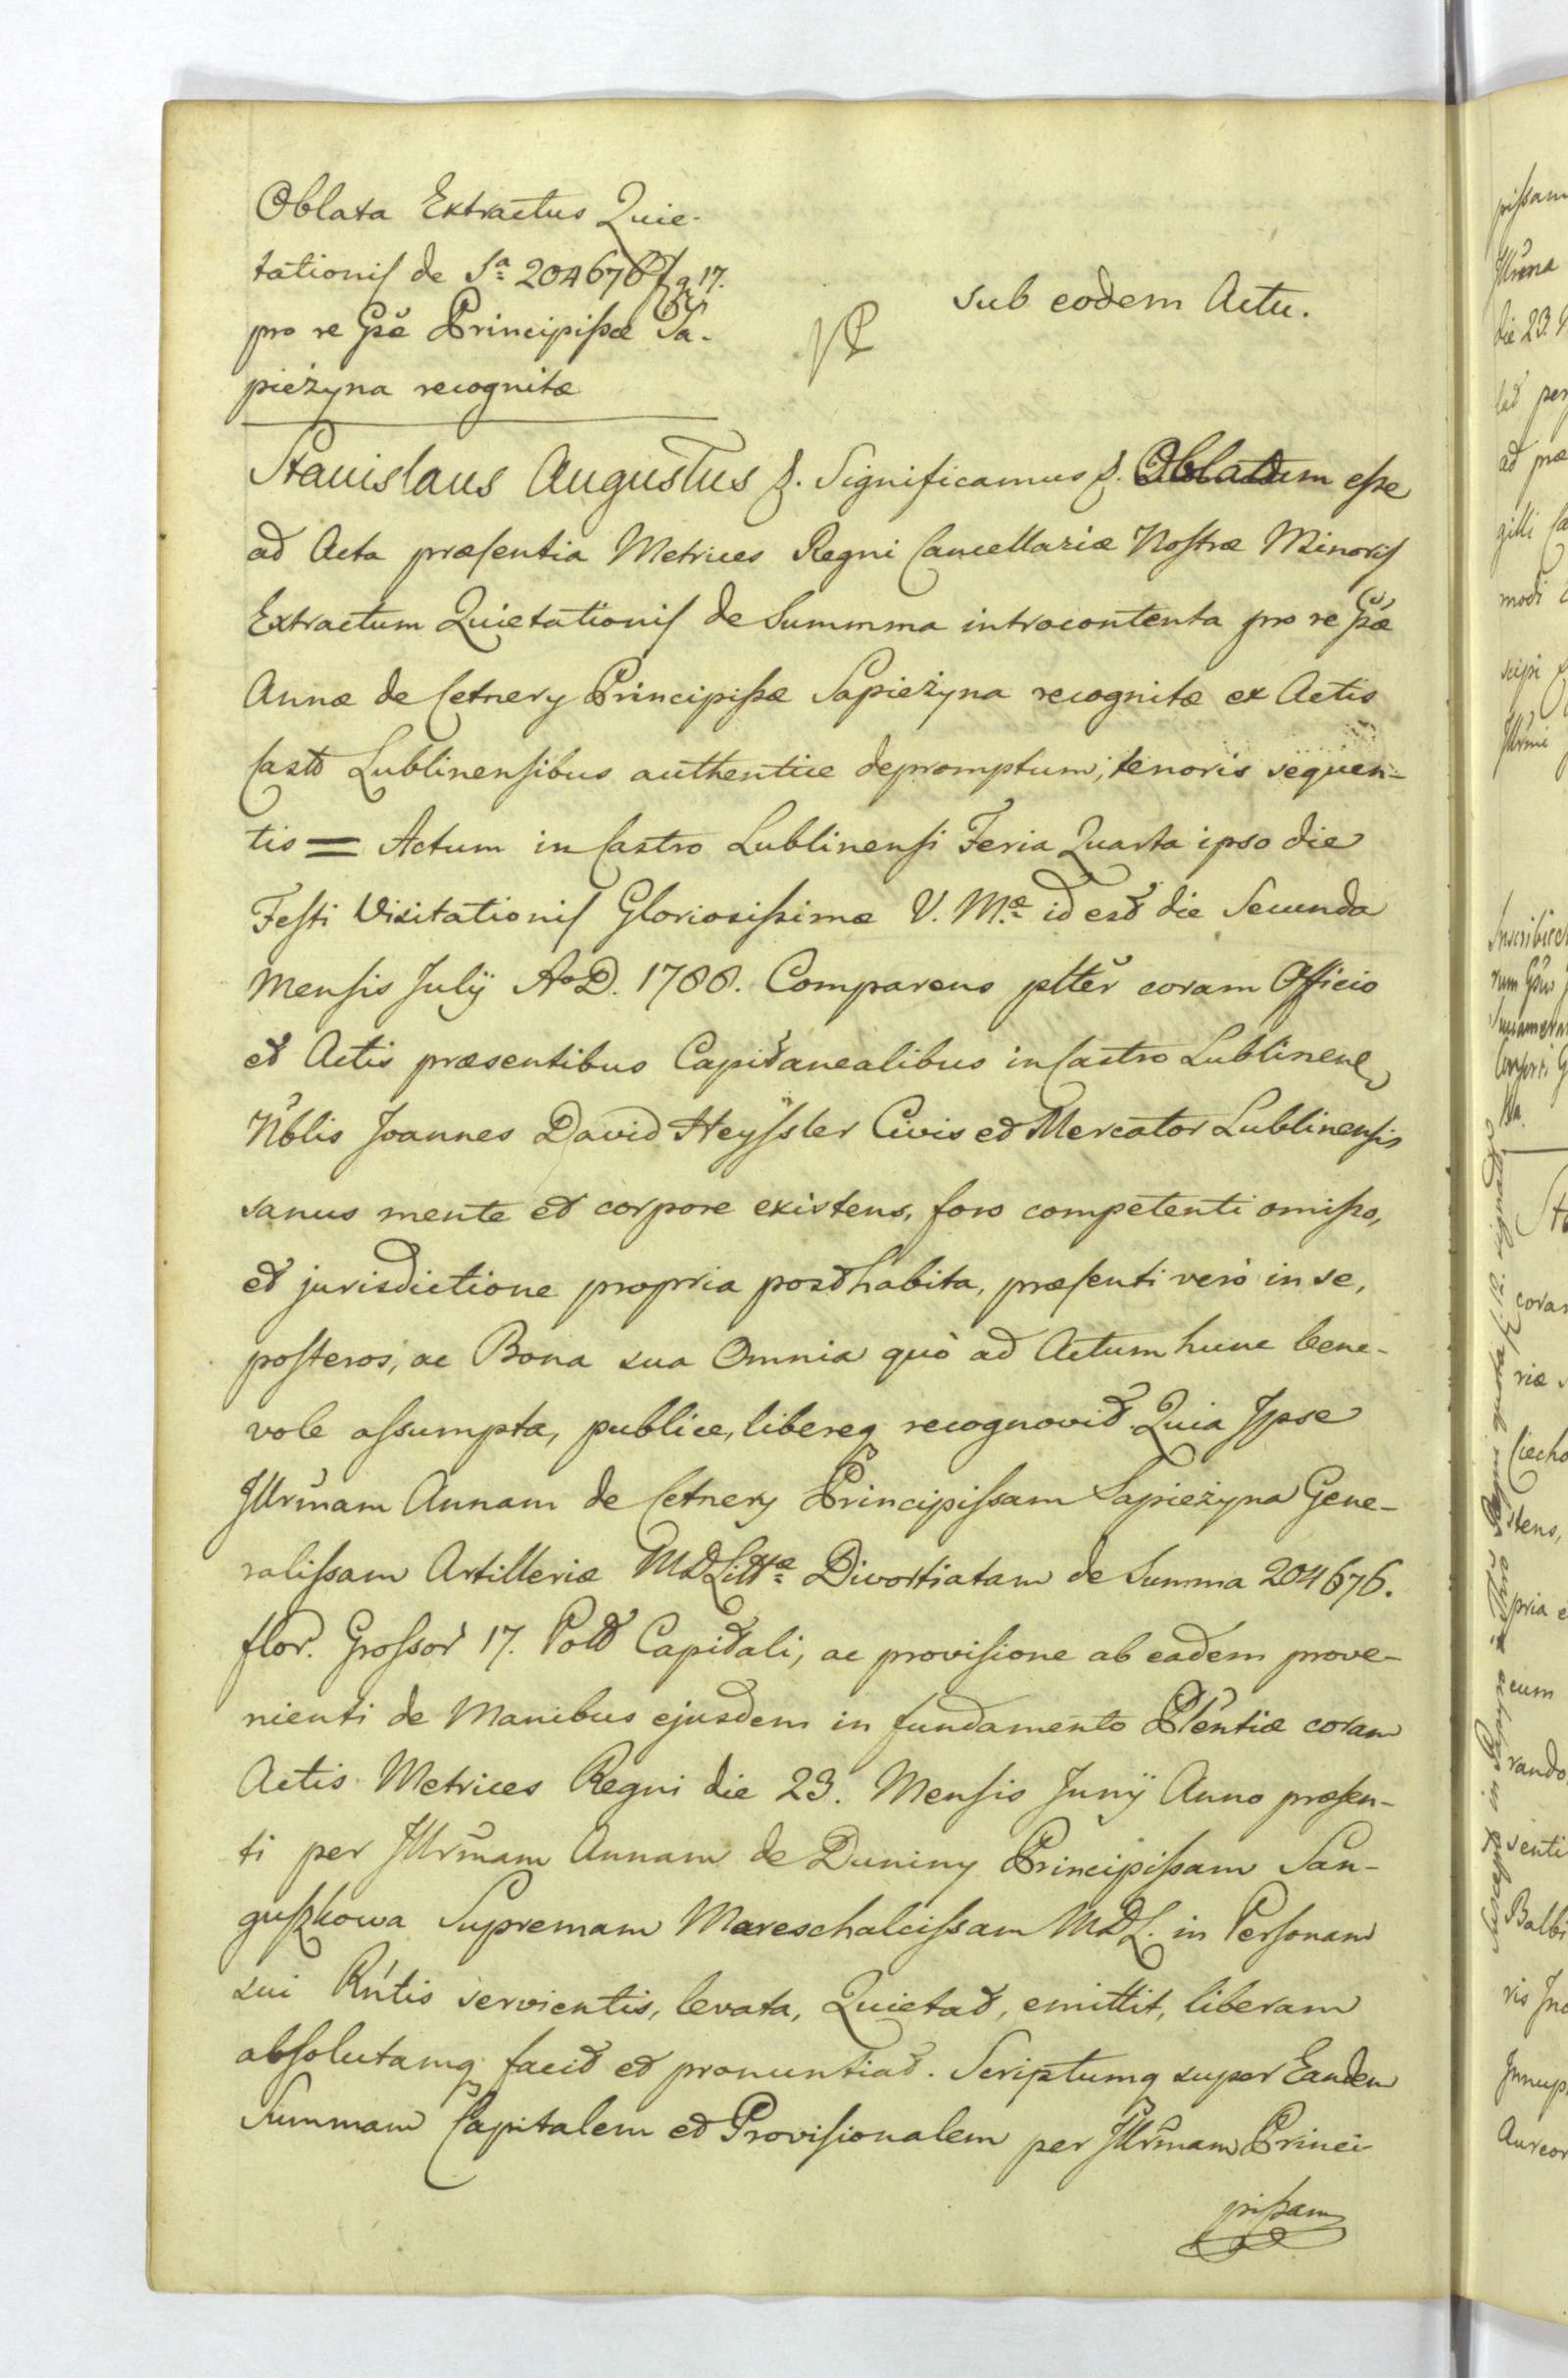 Oblata Extractus Quie-
tationis de Sa 204676 f g 17.
pro re Gsæ Principissæ Sa-
pieżyna recognitæ
Sub eodem Actu.
Stanislaus Augustus &. Significamus &. Oblatum esse
ad Acta præsentia Metrices Regni Cancellariæ Nostræ Minoris
Extractum Quietationis de Summma introcontenta pro re Gsæ
Annæ de Cetnery Principissæ Sapieżyna recognitæ ex Actis
Castr Lublinensibus authentice depromptum, tenoris sequen-
tis = Actum in Castro Lublinensi Feria Quarta ipso die
Festi Visitationis Gloriosissimæ V. Mæ id est die Secunda
Mensis Julij Ao D. 1788. Comparens pltter coram Officio
et Actis præsentibus Capitanealibus in Castro Lublinen
Nblis Joannes David Heyssler Civis et Mercator Lublinensis
sanus mente et corpore existens, foro competenti omisso,
et jurisdictione propria posthabita, præsenti verò in se,
posteros, ac Bona sua Omnia quò ad Actum hunc bene-
vole assumpta, publice, libereq recognovit Quia Jpse
Jllrmam Annam de Cetnery Principissam Sapieżyna Gene-
ralissam Artilleriæ MDLittæ Divortiatam de Summa 204676.
flor. Grossor 17. Pol Capitali, ac provisione ab eadem prove-
nienti de Manibus ejusdem in fundamento Plentiæ coram
Actis Metrices Regni die 23. Mensis Junij Anno præsen-
ti per Jllrmam Annam de Duniny Principissam San-
guszkowa Supremam Mareschalcissam MDL. in Personam
sui Rntis servientis, levata, Quietat, emittit, liberam
absolutamq facit et pronuntiat. Scriptumq super Eandem
Summam Capitalem et Provisionalem per Jllrmam Princi
pissam